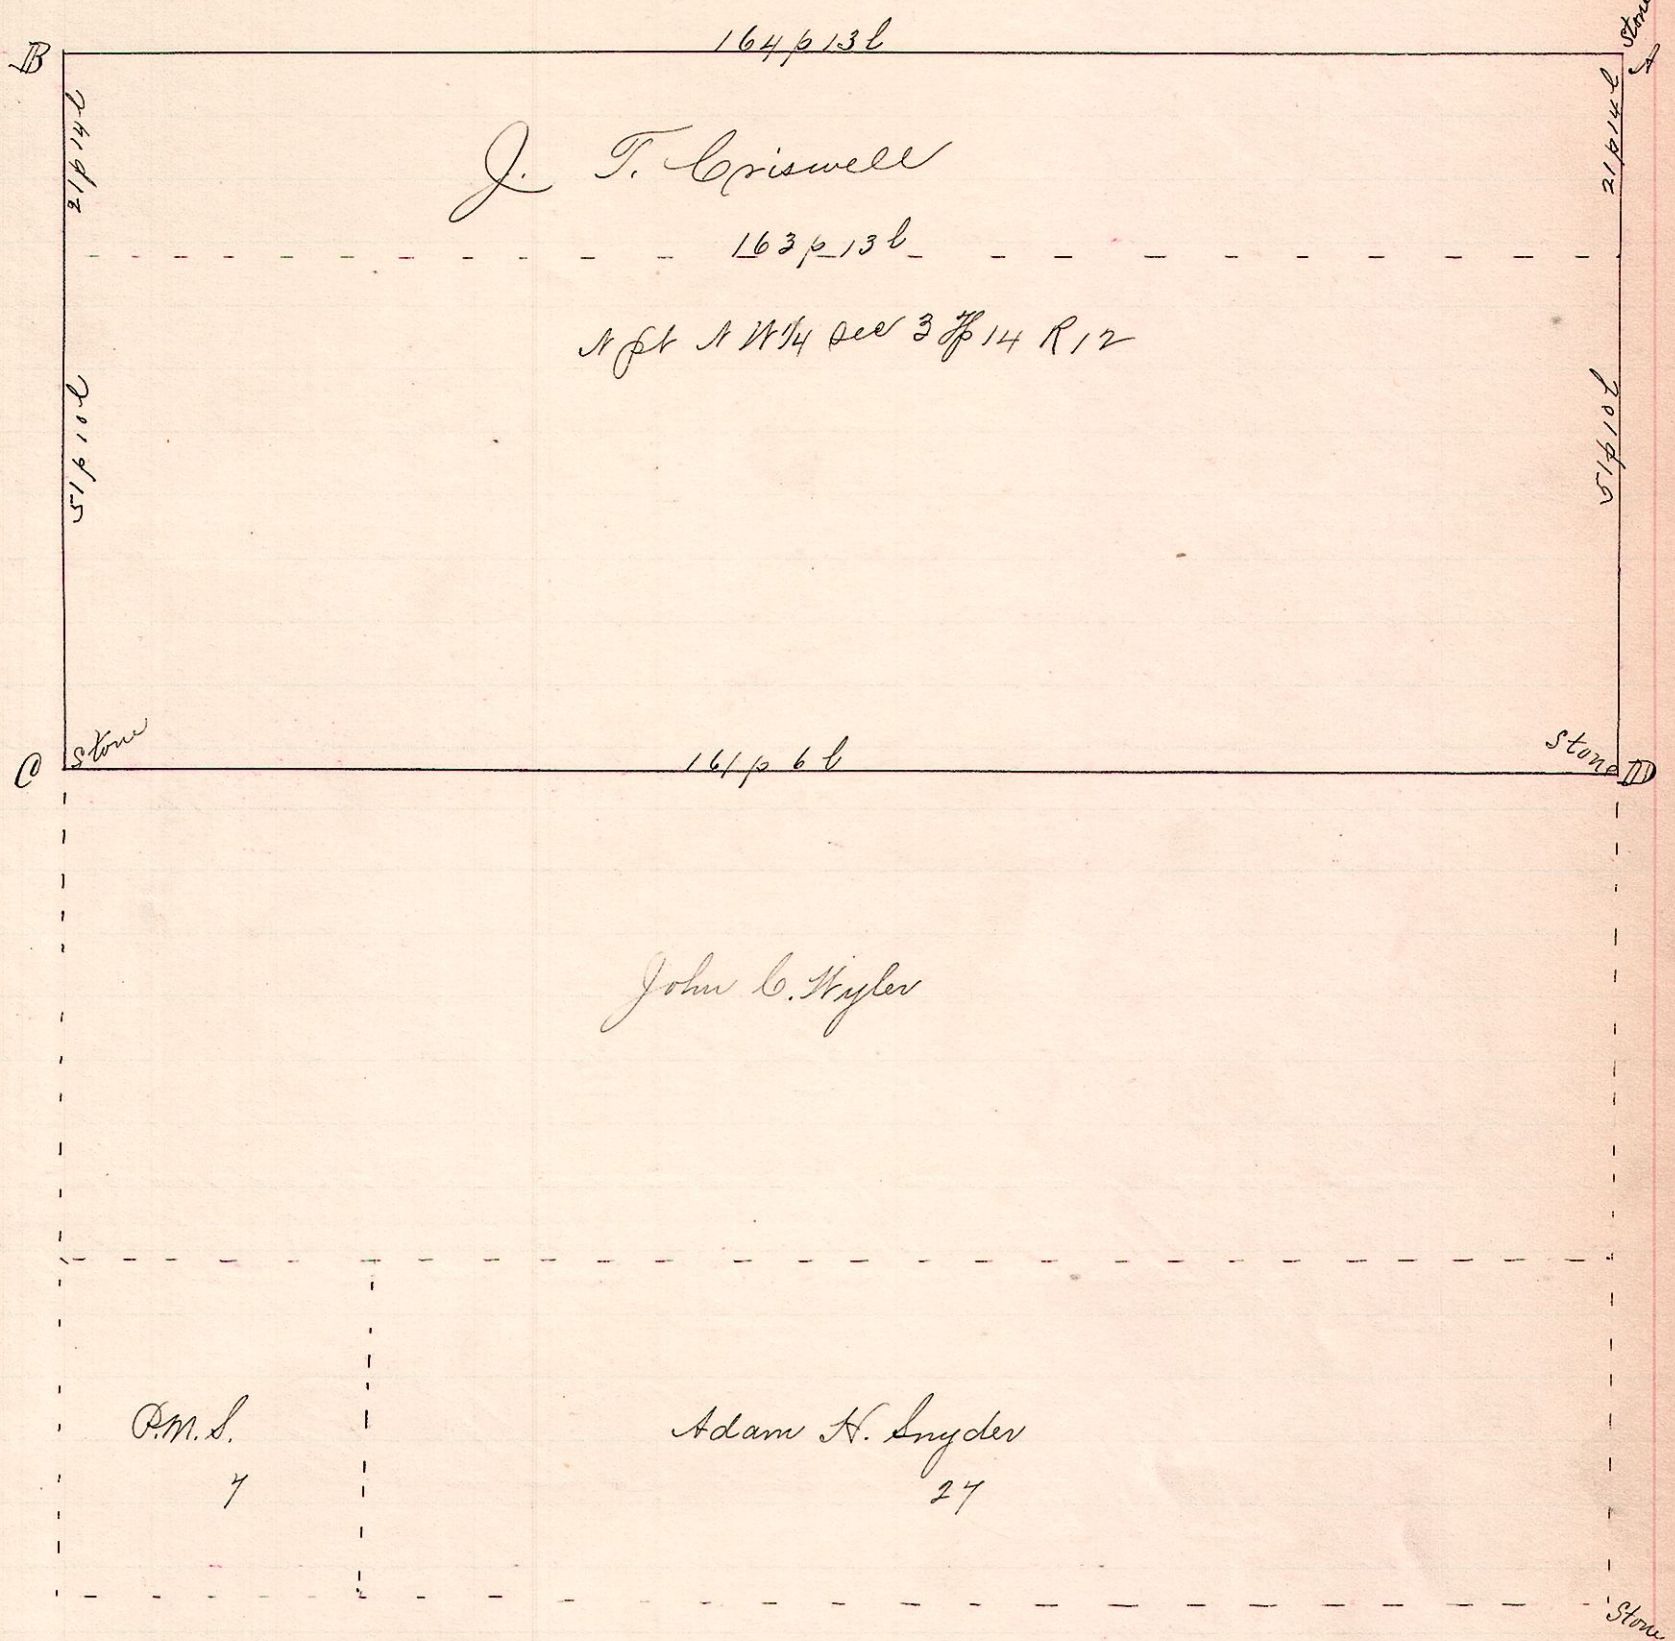 164 p 13 l
Stone
B
A
21 p 14 l
21 p 14 l
J. T. Criswell
163 p 13 l
N pt N W 1/4 Sec 3 Tp 14 R 12
51 p 10 l
51 p 10 l
Stone
Stone
C
161 p 6 l
D
John C. Wyler
P.M.S.
7
Adam H. Snyder
27
Stone